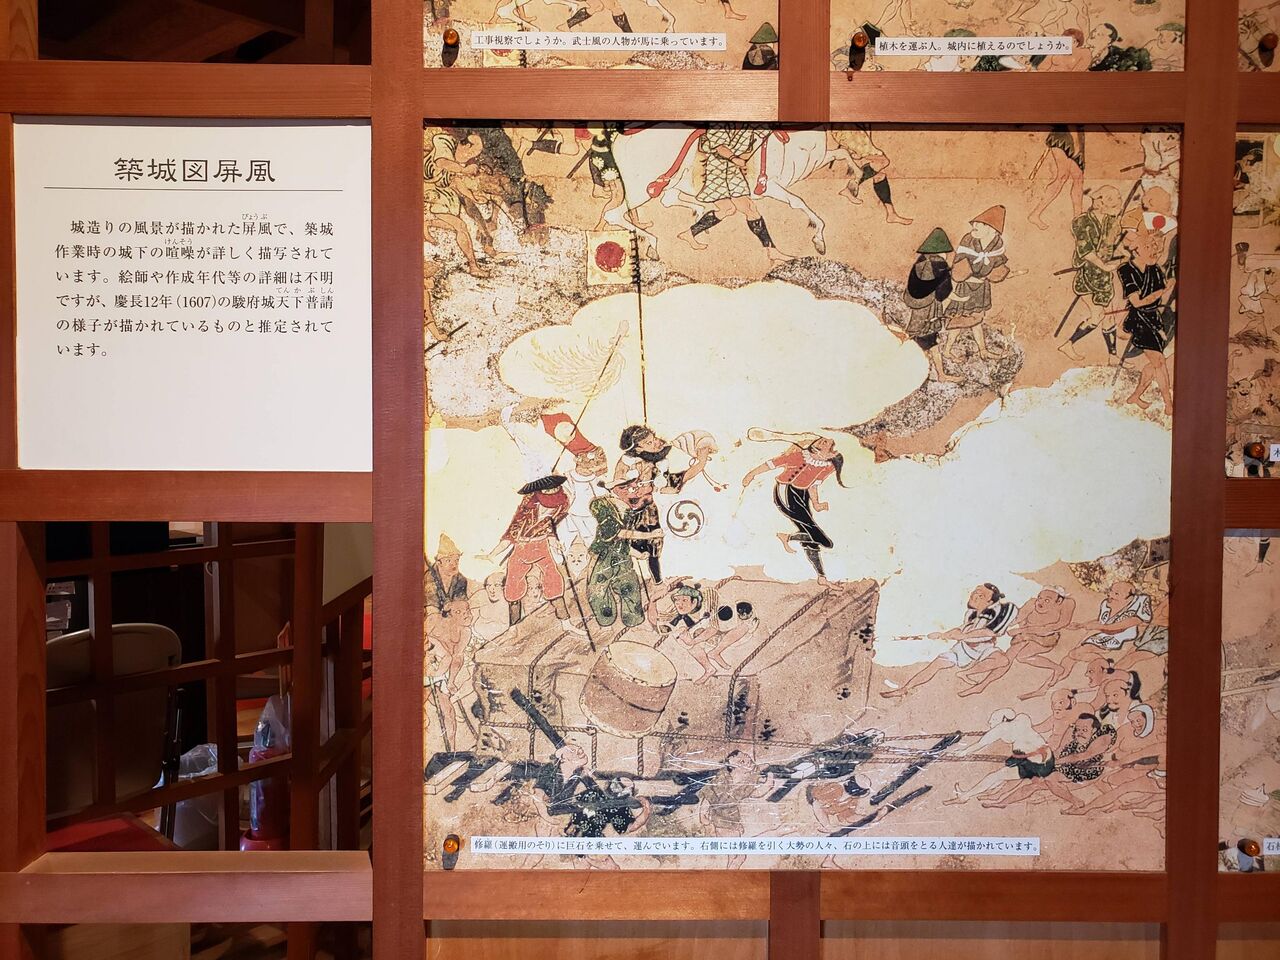 工事視察でしょうか。武士風の人物が馬に乗っています。
植木を運ぶ人。城内に植えるのでしょうか。
築城図屏風
城造りの風景が描かれた屏風で、築城
びょうぶ
作業時の城下の喧噪が詳しく描写されて
けんそう
います。絵師や作成年代等の詳細は不明
ですが、慶長12年(1607)の駿府城天下普請
てんかぶしん
の様子が描かれているものと推定されて
います。
修羅(運搬用のそり)に巨石を乗せて、運んでいます。右側には修羅を引く大勢の人々、石の上には音頭をとる人達が描かれています。
しゅら
木
石